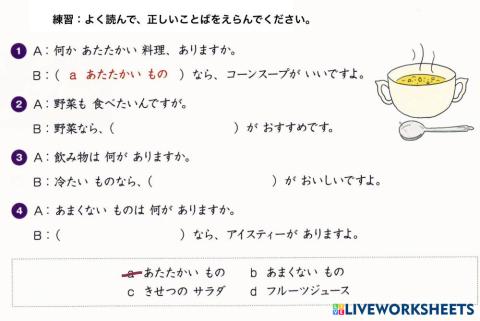 練習：よく読んで、正しいことばをえらんでください。
1 A：何か あたたかい 料理、ありますか。
B：（ a あたたかい もの ）なら、コーンスープが いいですよ。
2 A：野菜も 食べたいんですが。
B：野菜なら、（ ）が おすすめです。
3 A：飲み物は 何が ありますか。
B：冷たい ものなら、（ ）が おいしいですよ。
4 A：あまくない ものは 何が ありますか。
B：（ ）なら、アイスティーが ありますよ。
a あたたかい もの b あまくない もの
c きせつの サラダ d フルーツジュース
LIVEWORKSHEETS